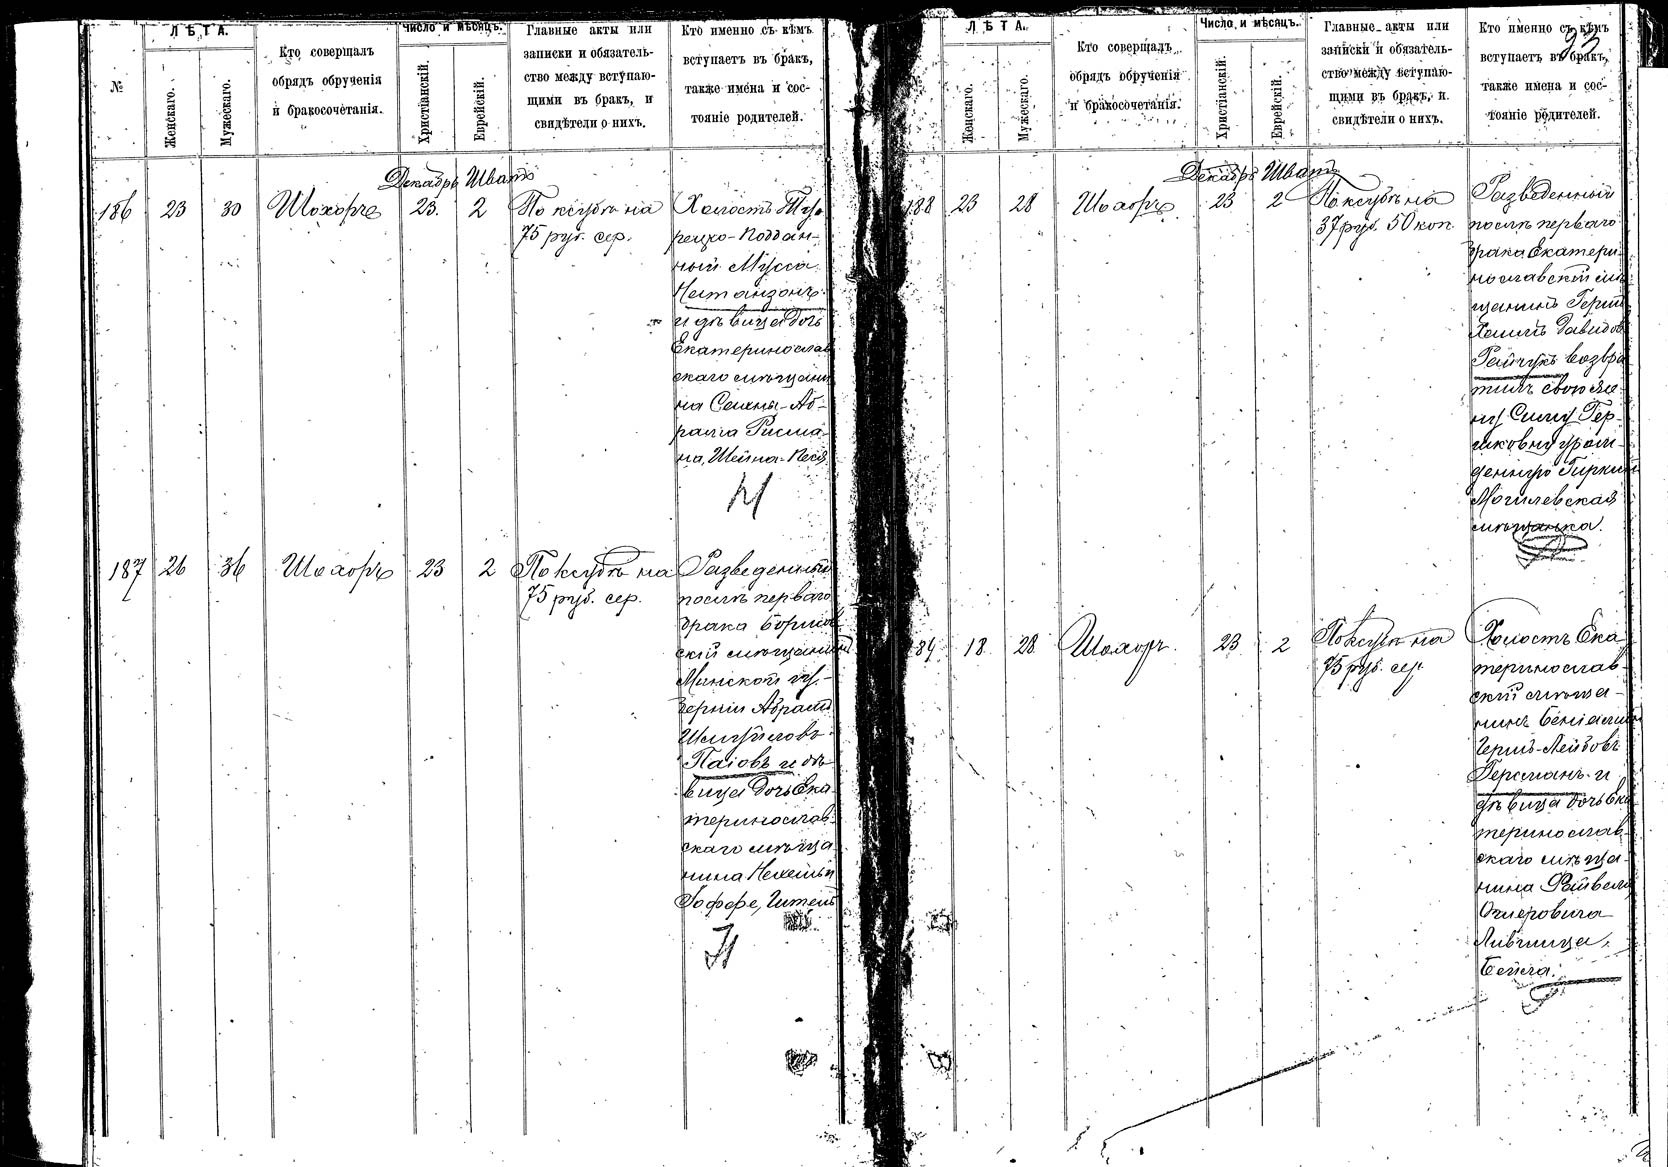 №
ЛѢТА.
Женскаго.
Мужескаго.
Кто совершалъ
обрядъ обрученія
и бракосочетанія.
Число и мѣсяцъ.
Христіанскій.
Еврейскій.
Главные акты или
записки и обязатель-
ство между вступаю-
щими въ бракъ, и
свидѣтели о нихъ.
Кто именно съ кѣмъ
вступаетъ въ бракъ,
также имена и сос-
тояніе родителей.
Декабрь Шватъ
186 23 30 Шохоръ 23. 2
По ксубѣ на
75 руб. сер.
Холостъ Ту-
рецко-Поддан-
ный Мусса
Натанзонъ
и дѣвица дочь
Екатеринослав
скаго мѣщани
на Селина-Аб-
рама Рисма-
на, Шейна-Песя
187 26 36 Шохоръ 23 2
По ксубѣ на
75 руб. сер.
Разведенный
послѣ перваго
брака Борисов
скій мѣщанинъ
Минской гу-
берніи Абрамъ
Шмуйловъ
Паіовъ и дѣ
вица дочь Ека
теринослав-
скаго мѣща
нина Нехемьи
Іоффе, Гитель
93
ЛѢТА.
Женскаго.
Мужескаго.
Кто совершалъ
обрядъ обрученія
и бракосочетанія.
Число и мѣсяцъ.
Христіанскій.
Еврейскій.
Главные акты или
записки и обязатель-
ство между вступаю-
щими въ бракъ, и
свидѣтели о нихъ.
Кто именно съ кѣмъ
вступаетъ въ бракъ,
также имена и сос-
тояніе родителей.
Декабрь Шватъ
188 23 28 Шохоръ 23 2
По ксубѣ на
37 руб. 50 коп.
Разведенный
послѣ перваго
брака Екатери
нославскій мѣ
щанинъ Герш
Хаимъ Давидов
Райчукъ возвра
тилъ свою же
ну Симу Гер-
шковну урож
денную Гиркин
Могилевская
мѣщанка.
89 18 28 Шохоръ 23 2
По ксубѣ на
75 руб. сер.
Холостъ Ека
теринослав-
скій мѣща-
нинъ Беніамин
Гершъ-Лейбовъ
Герсманъ и
дѣвица дочь Ека
теринослав-
скаго мѣща-
нина Файвеля
Ошеровича
Лившица,
Бейла.